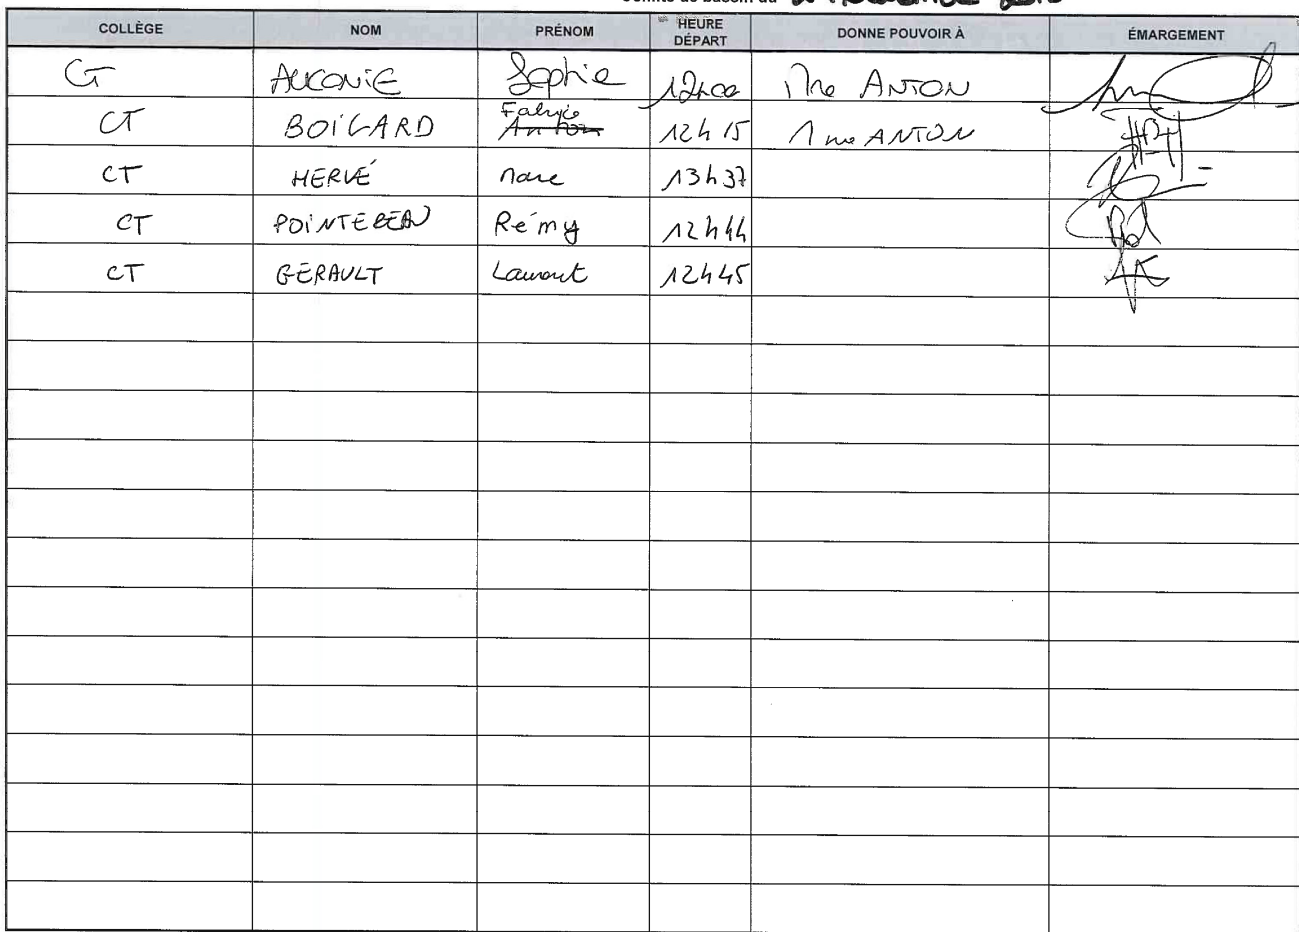 Comité de bassin du
COLLÈGE NOM PRÉNOM HEURE DÉPART DONNE POUVOIR À ÉMARGEMENT
CT AUCONIE Sophie 12h00 Mme ANTON
CT BOIGARD Fabrice Anton 12h15 Mme ANTON
CT HERVÉ Marc 13h37
CT POINTEREAU Rémy 12h44
CT GÉRAULT Laurent 12h45